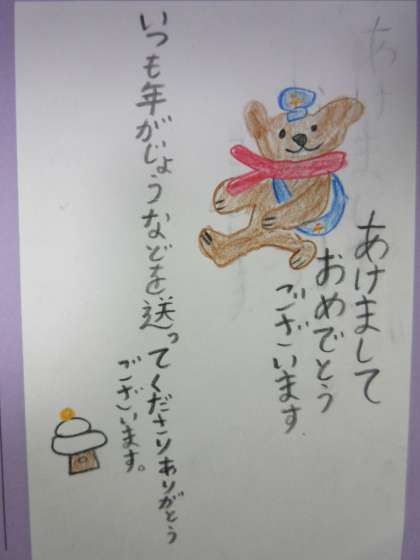 あけまして
おめでとう
ございます
いつも年がじょうなどを送ってくださりありがとう
ございます。